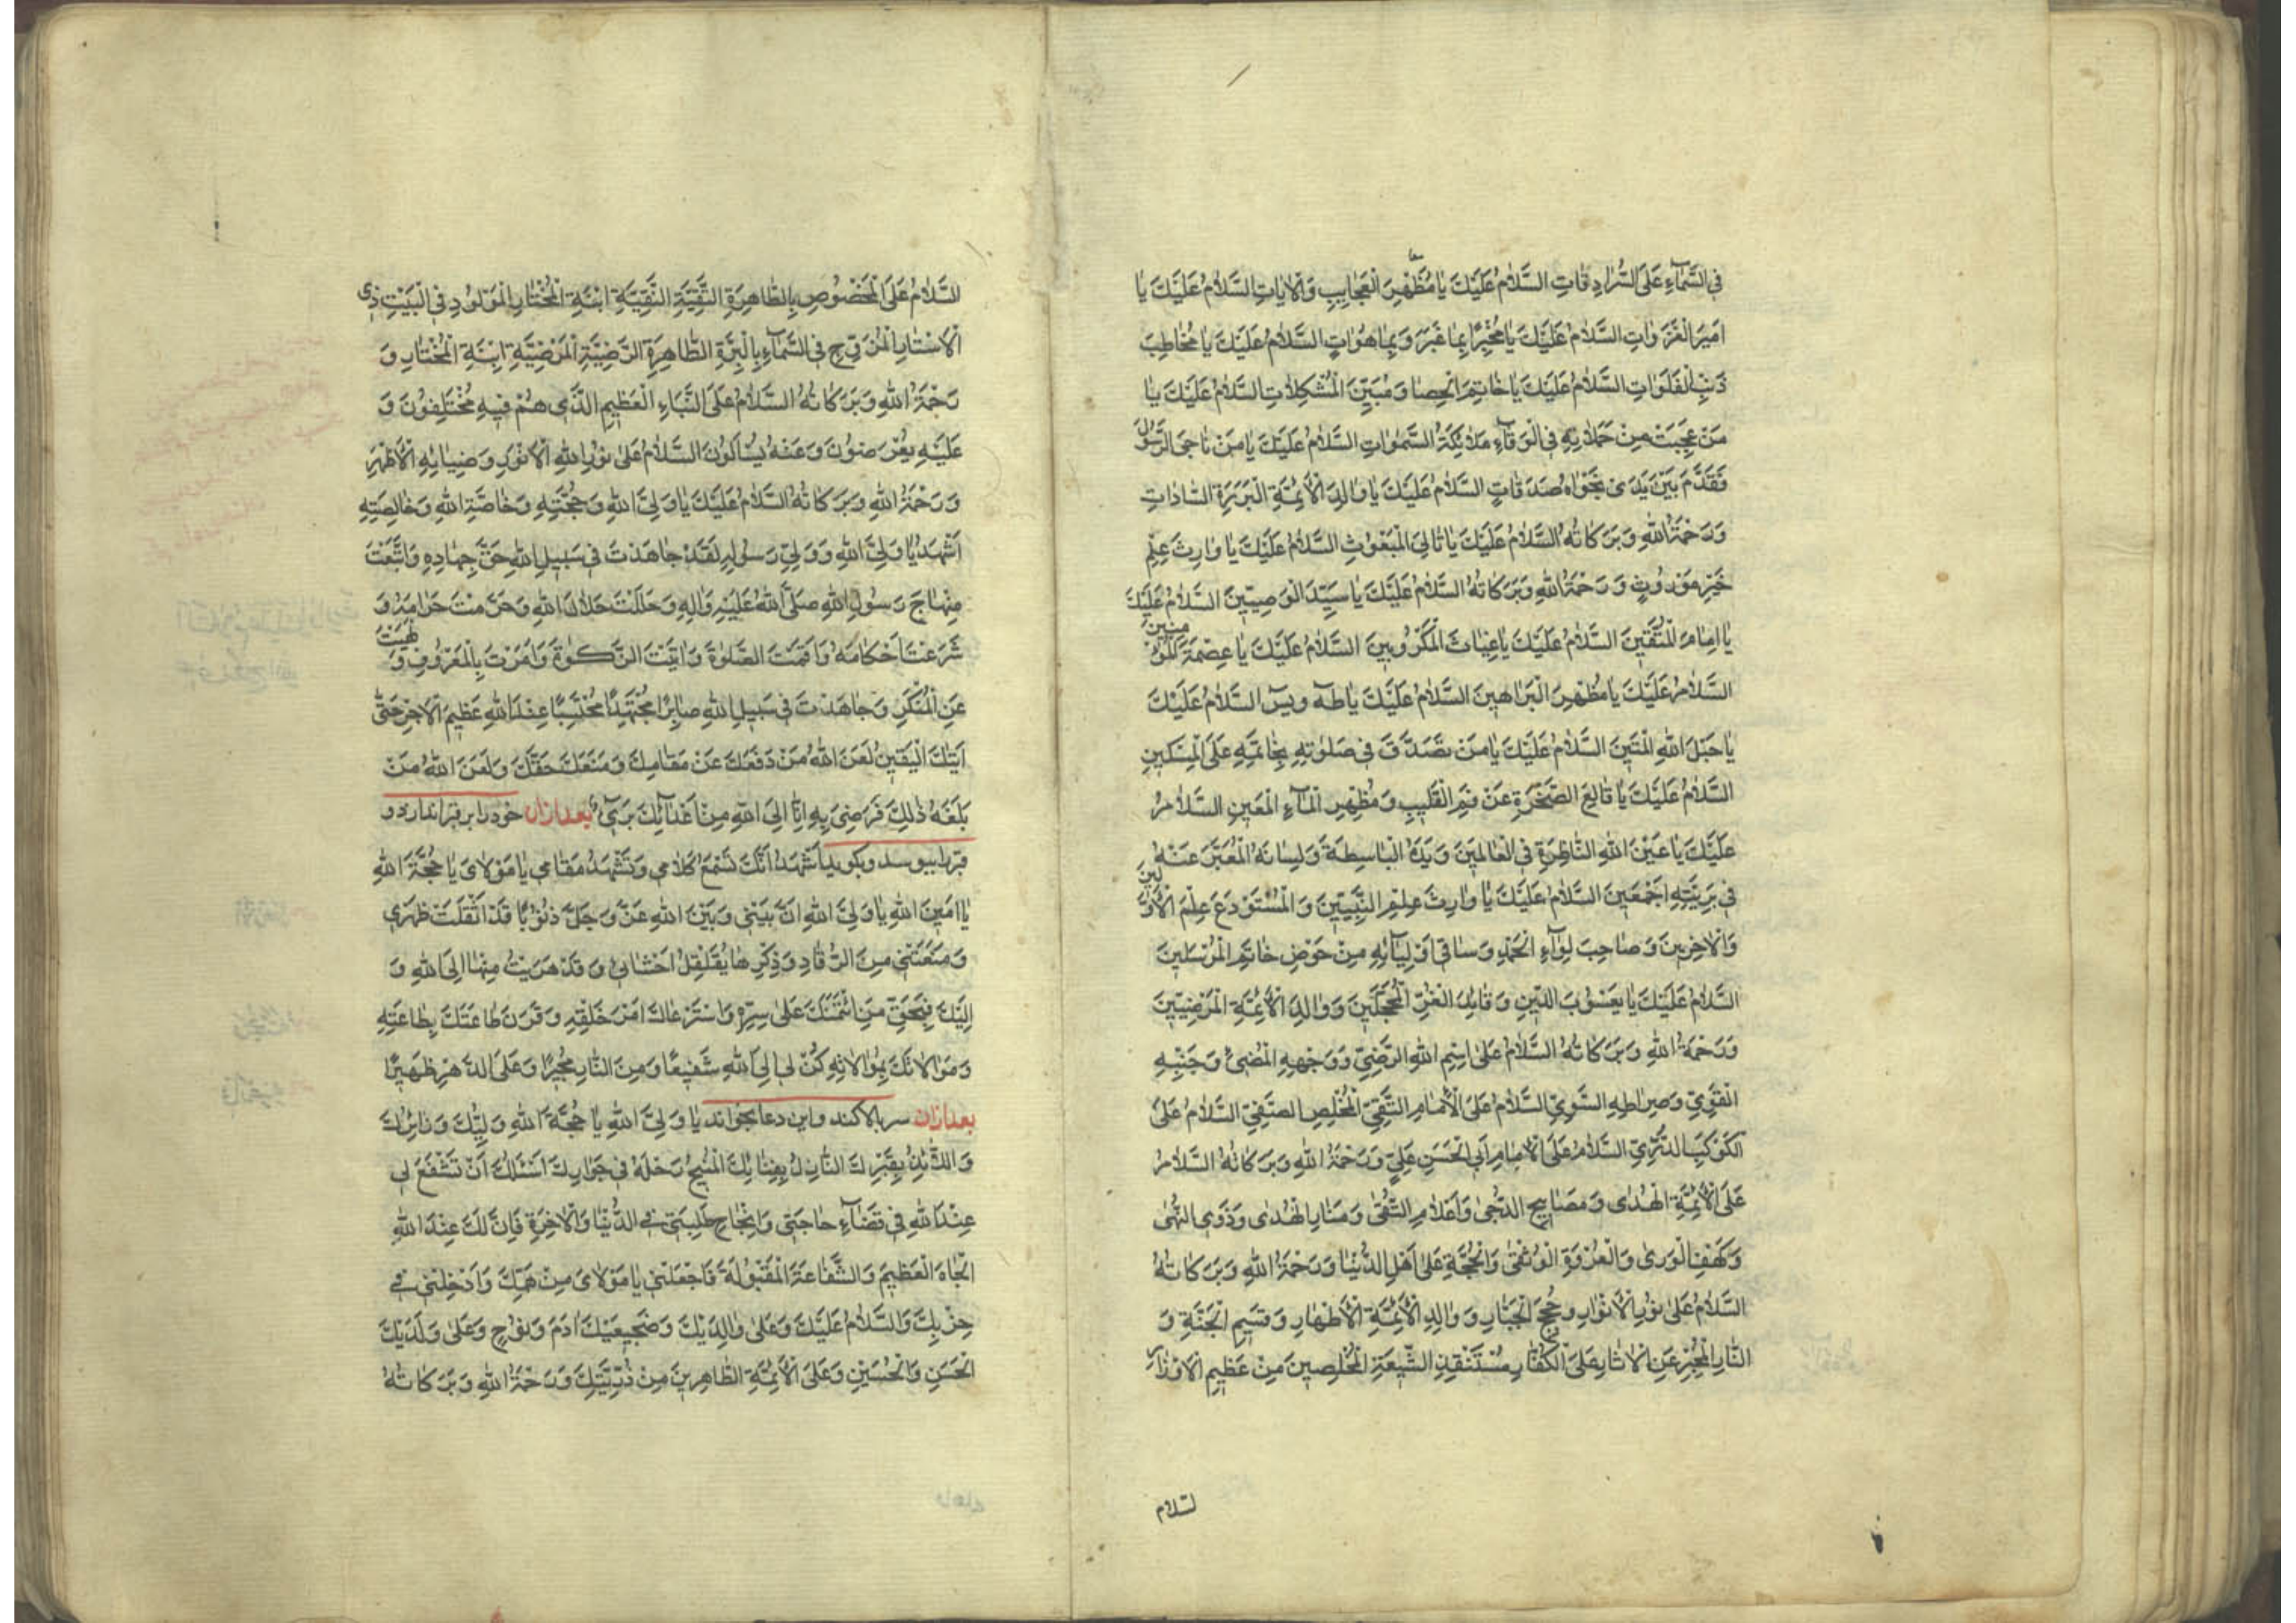 فِي السَّمَآءِ عَلَى السُّرَادِقَاتِ السَّلَامُ عَلَيْكَ يَا مُظْهِرَ الْعَجَايِبِ وَالْاٰيَاتِ السَّلَامُ عَلَيْكَ يَا
اَمِيرَ الْغَزَوَاتِ السَّلَامُ عَلَيْكَ يَا مُخْبِرًا بِمَا غَبَرَ وَبِمَا هُوَاٰتٍ السَّلَامُ عَلَيْكَ يَا مُخَاطِبَ
ذِئْبِ الْفَلَوَاتِ السَّلَامُ عَلَيْكَ يَا خَاتِمَ الْحِصَا وَمُبَيِّنَ الْمُشْكِلَاتِ السَّلَامُ عَلَيْكَ يَا
مَنْ عَجِبَتْ مِنْ حَمَلَاتِهِ فِي الْوَغَآءِ مَلَائِكَةُ السَّمٰوَاتِ السَّلَامُ عَلَيْكَ يَا مَنْ نَاجَى الرَّسُولَ
فَقَدَّمَ بَيْنَ يَدَىْ نَجْوَاهُ صَدَقَاتٍ السَّلَامُ عَلَيْكَ يَا وَالِدَ الْأَئِمَّةِ الْبَرَرَةِ السَّادَاتِ
وَرَحْمَةُ اللهِ وَبَرَكَاتُهُ السَّلَامُ عَلَيْكَ يَا تَالِيَ الْمَبْعُوثِ السَّلَامُ عَلَيْكَ يَا وَارِثَ عِلْمِ
خَيْرِ مَوْرُوثٍ وَرَحْمَةُ اللهِ وَبَرَكَاتُهُ السَّلَامُ عَلَيْكَ يَا سَيِّدَ الْوَصِيِّينَ السَّلَامُ عَلَيْكَ
يَا اِمَامَ الْمُتَّقِينَ السَّلَامُ عَلَيْكَ يَا غِيَاثَ الْمَكْرُوبِينَ السَّلَامُ عَلَيْكَ يَا عِصْمَةَ الْمُؤْمِنِينَ
السَّلَامُ عَلَيْكَ يَا مُظْهِرَ الْبَرَاهِينَ السَّلَامُ عَلَيْكَ يَا طٰهٰ وَيٰسٓ السَّلَامُ عَلَيْكَ
يَا حَبْلَ اللهِ الْمَتِينَ السَّلَامُ عَلَيْكَ يَا مَنْ تَصَدَّقَ فِي صَلٰوتِهِ بِخَاتَمِهِ عَلَى الْمِسْكِينِ
السَّلَامُ عَلَيْكَ يَا قَالِعَ الصَّخْرَةِ عَنْ فَمِ الْقَلِيبِ وَمُظْهِرِ الْمَآءِ الْمَعِينِ السَّلَامُ
عَلَيْكَ يَا عَيْنَ اللهِ النَّاظِرَةِ فِي الْعَالَمِينَ وَيَدَهُ الْبَاسِطَةَ وَلِسَانَهُ الْمُعَبِّرَ عَنْهُ
فِي بَرِيَّتِهِ اَجْمَعِينَ السَّلَامُ عَلَيْكَ يَا وَارِثَ عِلْمِ النَّبِيِّينَ وَالْمُسْتَوْدَعَ عِلْمَ الْأَوَّلِينَ
وَالْاٰخِرِينَ وَصَاحِبَ لِوَآءِ الْحَمْدِ وَسَاقِيَ اَوْلِيَآئِهِ مِنْ حَوْضِ خَاتَمِ الْمُرْسَلِينَ
السَّلَامُ عَلَيْكَ يَا يَعْسُوبَ الدِّينِ وَقَائِدَ الْغُرِّ الْمُحَجَّلِينَ وَوَالِدَ الْأَئِمَّةِ الْمَرْضِيِّينَ
وَرَحْمَةُ اللهِ وَبَرَكَاتُهُ السَّلَامُ عَلَى اسْمِ اللهِ الرَّضِيِّ وَوَجْهِهِ الْمُضِيْءِ وَجَنْبِهِ
الْقَوِيِّ وَصِرَاطِهِ السَّوِيِّ السَّلَامُ عَلَى الْأِمَامِ التَّقِيِّ الْمُخْلِصِ الصَّفِيِّ السَّلَامُ عَلَى
الْكَوْكَبِ الدُّرِّيِّ السَّلَامُ عَلَى الْاِمَامِ اَبِي الْحَسَنِ عَلِيٍّ وَرَحْمَةُ اللهِ وَبَرَكَاتُهُ السَّلَامُ
عَلَى الْأَئِمَّةِ الْهُدٰى وَمَصَابِيحِ الدُّجٰى وَاَعْلَامِ التُّقٰى وَمَنَارِ الْهُدٰى وَذَوِي النُّهٰى
وَكَهْفِ الْوَرٰى وَالْعُرْوَةِ الْوُثْقٰى وَالْحُجَّةِ عَلَى اَهْلِ الدُّنْيَا وَرَحْمَةُ اللهِ وَبَرَكَاتُهُ
السَّلَامُ عَلَى نُورِ الْأَنْوَارِ وَحُجَجِ الْجَبَّارِ وَوَالِدِ الْأَئِمَّةِ الْأَطْهَارِ وَقَسِيمِ الْجَنَّةِ وَ
النَّارِ الْمُخْبِرِ عَنِ الْاٰثَارِ عَلَى الْكُفَّارِ مُسْتَنْقِذِ الشِّيعَةِ الْمُخْلِصِينَ مِنْ عَظِيمِ الْاَوْزَارِ
لسلام
السَّلَامُ عَلَى الْمَخْصُوصِ بِالطَّاهِرَةِ التَّقِيَّةِ النَّقِيَّةِ ابْنَةِ الْمُخْتَارِ الْمَوْلُودِ فِي الْبَيْتِ ذِي
الْأَسْتَارِ الْمُزَوَّجِ فِي السَّمَآءِ بِالْبَرَّةِ الطَّاهِرَةِ الرَّضِيَّةِ الْمَرْضِيَّةِ ابْنَةِ الْمُخْتَارِ وَ
رَحْمَةُ اللهِ وَبَرَكَاتُهُ السَّلَامُ عَلَى النَّبَاءِ الْعَظِيمِ الَّذِي هُمْ فِيهِ مُخْتَلِفُونَ وَ
عَلَيْهِ يُعْرَضُونَ وَعَنْهُ يُسْاَلُونَ السَّلَامُ عَلَى نُورِ اللهِ الْأَنْوَرِ وَضِيَائِهِ الْأَظْهَرِ
وَرَحْمَةُ اللهِ وَبَرَكَاتُهُ السَّلَامُ عَلَيْكَ يَا وَلِيَّ اللهِ وَحُجَّتِهِ وَخَاصَّةِ اللهِ وَخَالِصَتِهِ
اَشْهَدُ يَا وَلِيَّ اللهِ وَوَلِيَّ رَسُولِهِ لَقَدْ جَاهَدْتَ فِي سَبِيلِ اللهِ حَقَّ جِهَادِهِ وَاتَّبَعْتَ
مِنْهَاجَ رَسُولِ اللهِ صَلَّى اللهُ عَلَيْهِ وَاٰلِهِ وَحَلَّلْتَ حَلَالَ اللهِ وَحَرَّمْتَ حَرَامَهُ وَ
شَرَعْتَ اَحْكَامَهُ وَاَقَمْتَ الصَّلٰوةَ وَاٰتَيْتَ الزَّكٰوةَ وَاَمَرْتَ بِالْمَعْرُوفِ وَنَهَيْتَ
عَنِ الْمُنْكَرِ وَجَاهَدْتَ فِي سَبِيلِ اللهِ صَابِرًا مُجْتَهِدًا مُحْتَسِبًا عِنْدَ اللهِ عَظِيمَ الْاَجْرِ حَتّٰى
اَتٰيكَ الْيَقِينُ لَعَنَ اللهُ مَنْ دَفَعَكَ عَنْ مَقَامِكَ وَمَنَعَكَ حَقَّكَ وَلَعَنَ اللهُ مَنْ
بَلَغَهُ ذٰلِكَ فَرَضِىَ بِهِ اِنَّا اِلَى اللهِ مِنْ اَعْدَآئِكَ بَرِىٓءٌ بعدازان خود را بر قبر اندازد و
قبر را ببوسد و بكويد اَشْهَدُ اَنَّكَ تَسْمَعُ كَلَامِي وَتَشْهَدُ مَقَامِي يَا مَوْلَاىَ يَا حُجَّةَ اللهِ
يَا اَمِينَ اللهِ يَا وَلِيَّ اللهِ اِنَّ بَيْنِي وَبَيْنَ اللهِ عَزَّ وَجَلَّ ذُنُوبًا قَدْ اَثْقَلَتْ ظَهْرِي
وَمَنَعَتْنِي مِنَ الرُّقَادِ وَذِكْرُهَا يُقَلْقِلُ اَحْشَائِي وَقَدْ هَرَبْتُ مِنْهَا اِلَى اللهِ وَ
اِلَيْكَ فَبِحَقِّ مَنِ ائْتَمَنَكَ عَلَى سِرِّهِ وَاسْتَرْعَاكَ اَمْرَ خَلْقِهِ وَقَرَنَ طَاعَتَكَ بِطَاعَتِهِ
وَمُوَالَاتَكَ بِمُوَالَاتِهِ كُنْ لِي اِلَى اللهِ شَفِيعًا وَمِنَ النَّارِ مُجِيرًا وَعَلَى الدَّهْرِ ظَهِيرًا
بعدازان سر بالا كند و اين دعا بخواند يَا وَلِيَّ اللهِ يَا حُجَّةَ اللهِ وَلِيُّكَ وَزَائِرُكَ
وَاللَّائِذُ بِقَبْرِكَ النَّازِلُ بِفِنَائِكَ الْمُنِيخُ رَحْلَهُ فِي جَوَارِكَ اَسْئَلُكَ اَنْ تَشْفَعَ لِي
عِنْدَ اللهِ فِي قَضَآءِ حَاجَتِي وَاِنْجَاحِ طَلِبَتِي فِي الدُّنْيَا وَالْاٰخِرَةِ فَاِنَّ لَكَ عِنْدَ اللهِ
الْجَاهَ الْعَظِيمَ وَالشَّفَاعَةَ الْمَقْبُولَةَ فَاجْعَلْنِي يَا مَوْلَاىَ مِنْ هَمِّكَ وَاَدْخِلْنِي فِي
حِزْبِكَ وَالسَّلَامُ عَلَيْكَ وَعَلَى وَالِدَيْكَ وَضَجِيعَيْكَ اٰدَمَ وَنُوحٍ وَعَلَى وَلَدَيْكَ
الْحَسَنِ وَالْحُسَيْنِ وَعَلَى الْأَئِمَّةِ الطَّاهِرِينَ مِنْ ذُرِّيَّتِكَ وَرَحْمَةُ اللهِ وَبَرَكَاتُهُ